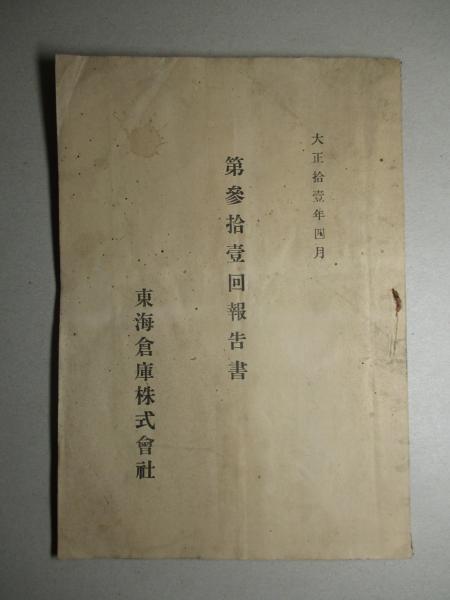 大正拾壹年四月
第參拾壹回報告書
東海倉庫株式會社